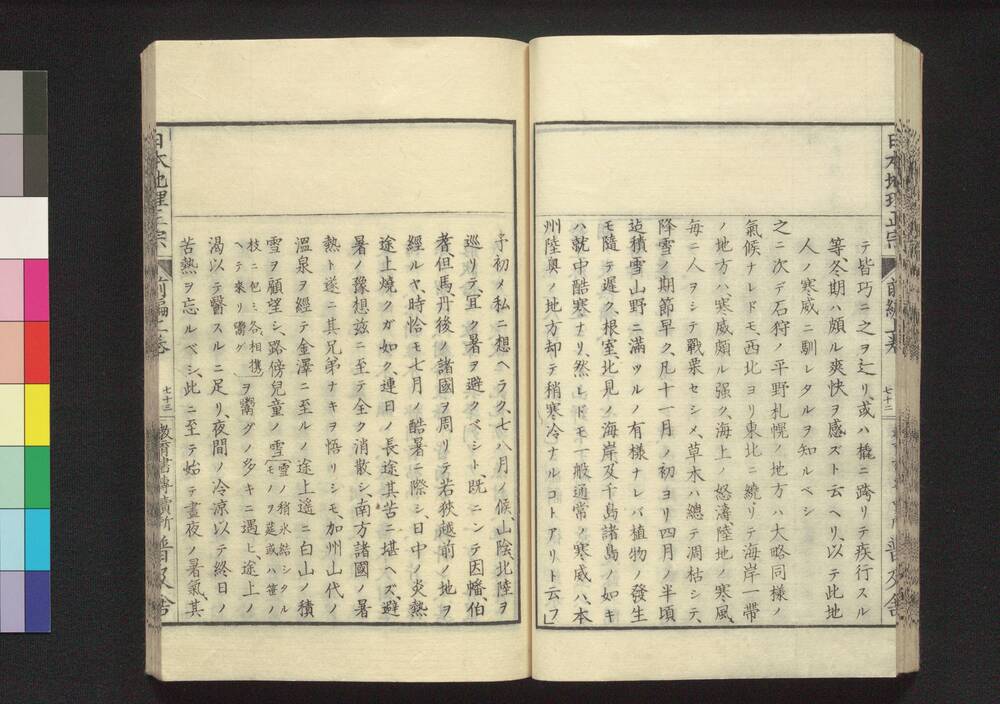 日本地理正宗
前編上卷
七十二
普及舍
テ皆巧ニ之ヲ辷リ、或ハ橇ニ跨リテ疾行スル
等、冬期ハ頗ル爽快ヲ感ズト云ヘリ、以テ此地
人ノ寒威ニ馴レタルヲ知ルベシ
之ニ次デ石狩ノ平野札幌ノ地方ハ大略同様ノ
氣候ナレドモ、西北ヨリ東北ニ繞リテ海岸一帶
ノ地方ハ寒威頗ル强ク、海上ノ怒濤陸地ノ寒風、
毎ニ人ヲシテ戰栗セシメ、草木ハ總テ凋枯シテ、
降雪ノ期節早ク、凡十一月ノ初ヨリ四月ノ半頃
迄積雪山野ニ滿ツルノ有樣ナレバ植物ノ發生
モ隨テ遲ク、根室、北見ノ海岸及千島諸島ノ如キ
ハ就中酷寒ナリ、然レドモ「一般通常ノ寒威ハ、本
州陸奥ノ地方却テ稍寒冷」ナルコトアリト云フ
予初メ私ニ想ヘラク、七八月ノ候、山陰、北陸ヲ
巡リテ、宜ク暑ヲ避クベシト、既ニシテ因幡伯
耆、但馬丹後ノ諸國ヲ周リテ若狹越前ノ地ヲ
經ルヤ、時恰モ七月ノ酷暑ニ際シ、日中ノ炎熱
途上燒クガ如ク、連日ノ長途其苦ニ堪ヘズ、避
暑ノ豫想玆ニ至テ全ク消散シ、南方諸國ノ暑
熱ト遂ニ其兄弟ナキヲ悟リシモ、加州山代ノ
溫泉ヲ經テ金澤ニ至ルノ途上遙ニ白山ノ積
雪ヲ顧望シ、路傍兒童ノ雪(雪ノ稍氷結シタルモノヲ莚或ハ笹ノ
枝ニ包ミ、各相携ヘテ來リ鬻グ)ヲ鬻グノ多キニ遇ヒ、途上ノ
渴以テ醫スルニ足リ、夜間ノ冷凉以テ終日ノ
苦熱ヲ忘ルベシ、此ニ至テ始テ晝夜ノ暑氣、其
日本地理正宗
前編上卷
七十三
教育書專賣所
普及舍